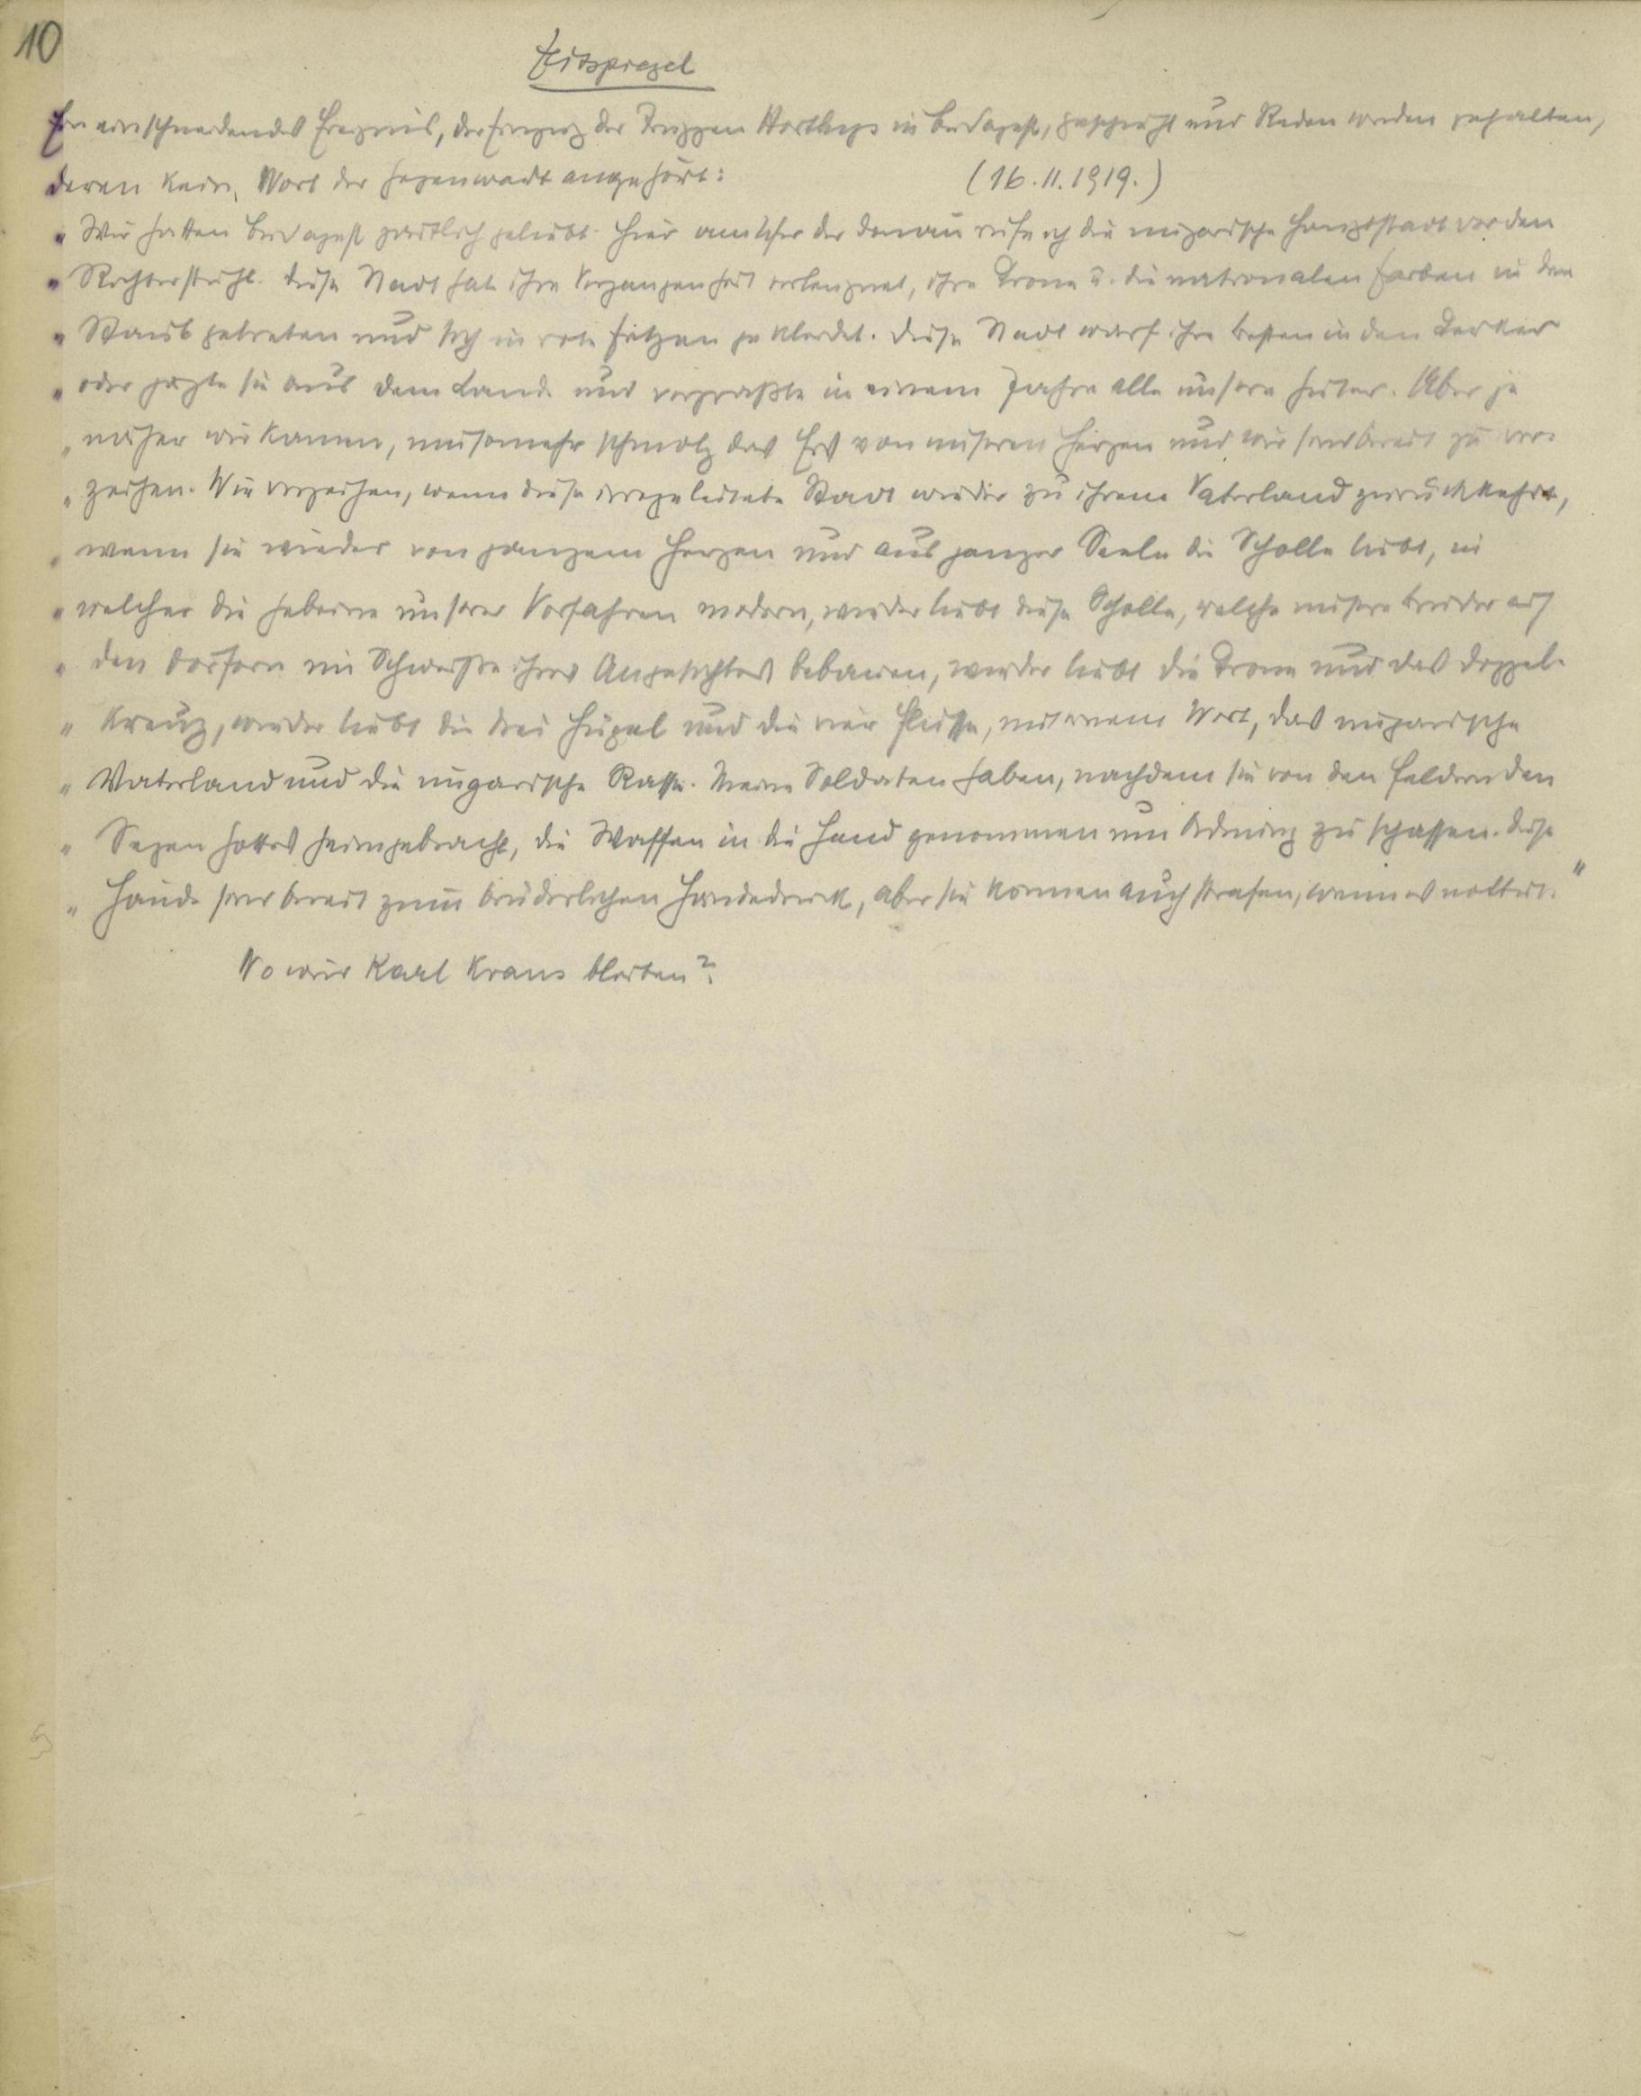 10
Zeitspiegel
Ein einschneidendes Ereignis, der Einzug der Truppen Horthys in Budapest, geschieht und Reden werden gehalten,
deren kein Wort der Gegenwart angehört: (16.11.1919.)
" Wir hatten Budapest zärtlich geliebt. Hier am Ufer der Donau rufe ich die ungarische Hauptstadt vor den
" Richterstuhl. Diese Stadt hat ihre Vergangenheit verleugnet, ihre Krone u. die nationalen Farben in den
" Staub getreten und sich in rote Fetzen gekleidet. Diese Stadt warf ihre Besten in den Kerker
" oder jagte sie aus dem Lande und verpraßte in einem Jahre alle unsere Güter. Aber je
" näher wir kamen, umsomehr schmolz das Eis von unseren Herzen und wir sind bereit zu ver-
" zeihen. Wir verzeihen, wenn diese irregeleitete Stadt wieder zu ihrem Vaterland zurückkehrt,
" wenn sie wieder von ganzem Herzen und aus ganzer Seele die Scholle liebt, in
" welcher die Gebeine unserer Vorfahren modern, wieder liebt diese Scholle, welche unsere Brüder auf
" den Dörfern im Schweiße ihres Angesichtes bebauen, wieder liebt die Krone und das Doppel-
" kreuz, wieder liebt die drei Hügel und die vier Flüsse, mit einem Wort, das ungarische
" Vaterland und die ungarische Rasse. Meine Soldaten haben, nachdem sie von den Feldern den
" Segen Gottes heimgebracht, die Waffen in die Hand genommen um Ordnung zu schaffen. Diese
" Hände sind bereit zum brüderlichen Händedruck, aber sie können auch strafen, wenn es nottut. "
Wo wir Karl Kraus bleiben?